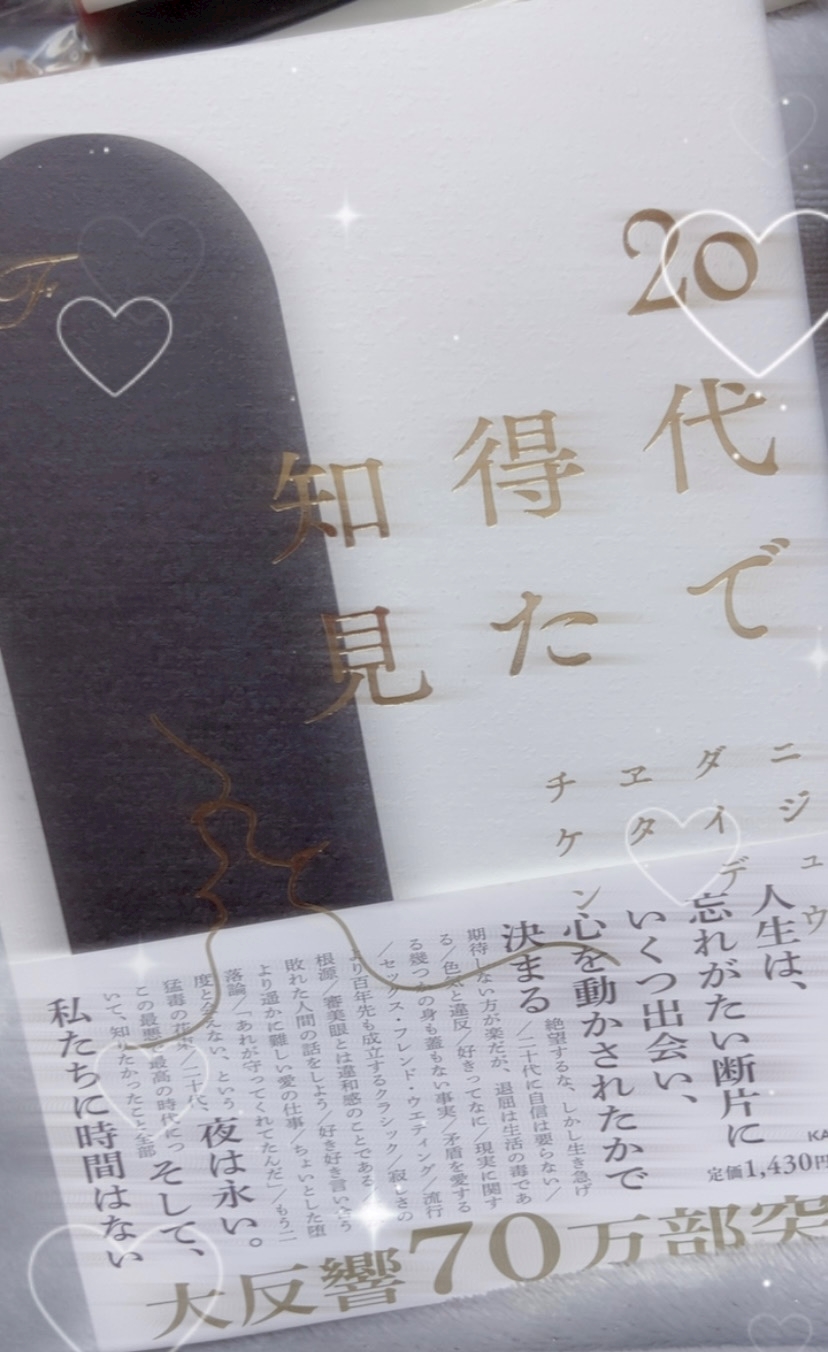 20代で
得た
知見
F
ニジュウ
ダイデ
ヱタ
チケン
人生は、
忘れがたい断片に
いくつ出会い、
心を動かされたかで
決まる
絶望するな、しかし生き急げ
／二十代に自信は要らない／
期待しない方が楽だが、退屈は生活の毒であ
る／色気と違反／好きってなに／現実に関す
る幾つかの身も蓋もない事実／矛盾を愛する
／セックス・フレンド・ウエティング／流行
より百年先も成立するクラシック／寂しさの
根源／審美眼とは違和感のことである／
敗れた人間の話をしよう／好き好き言い合う
より遥かに難しい愛の仕事／ちょいとした堕
落論／「あれが守ってくれてたんだ」／もう二
度と会えない、という
猛毒の花束／二十代、
この最悪で最高の時代につ
いて、知りたかったこと全部
夜は永い。
そして、
私たちに時間はない
KA
定価1,430円
大反響70万部突